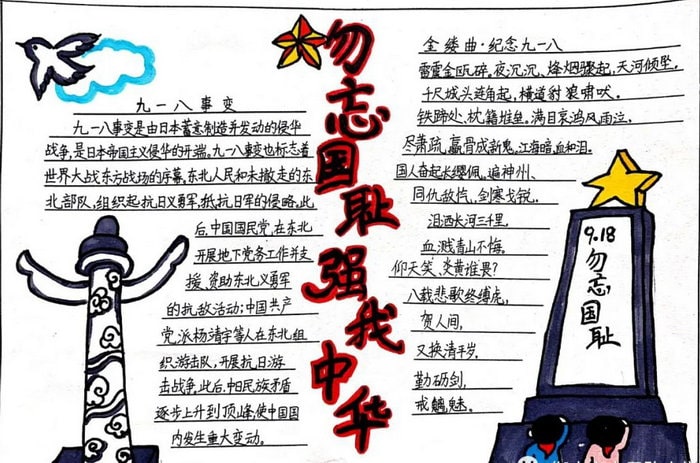 勿忘国耻强我中华
九一八事变
九一八事变是由日本蓄意制造并发动的侵华
战争,是日本帝国主义侵华的开端。九一八事变也标志着
世界大战东方战场的序幕。东北人民和未撤走的东
北部队,组织起抗日义勇军,抵抗日军的侵略,此
后,中国国民党,在东北
开展地下党务工作并支
援、资助东北义勇军
的抗敌活动;中国共产
党,派杨靖宇等人在东北组
织游击队,开展抗日游
击战争,此后,中日民族矛盾
逐步上升到顶峰,使中国国
内发生重大变动。
金缕曲·纪念九一八
雷震金瓯碎。夜沉沉、烽烟骤起,天河倾坠。
千尺城头连角起,横道豺狼啸吠。
铁蹄处、枕籍堆垒。满目哀鸿风雨泣。
尽萧疏,羸骨成新鬼,江海暗,血和泪。
国人奋起长缨佩。遍神州、
同仇敌忾,剑寒戈锐。
泪洒长河三千里,
血溅青山不悔。
仰天笑、炎黄谁畏?
八载悲歌终缚虎,
贺人间,
又换清平岁。
勤砺剑,
戒魑魅。
9.18
勿忘国耻